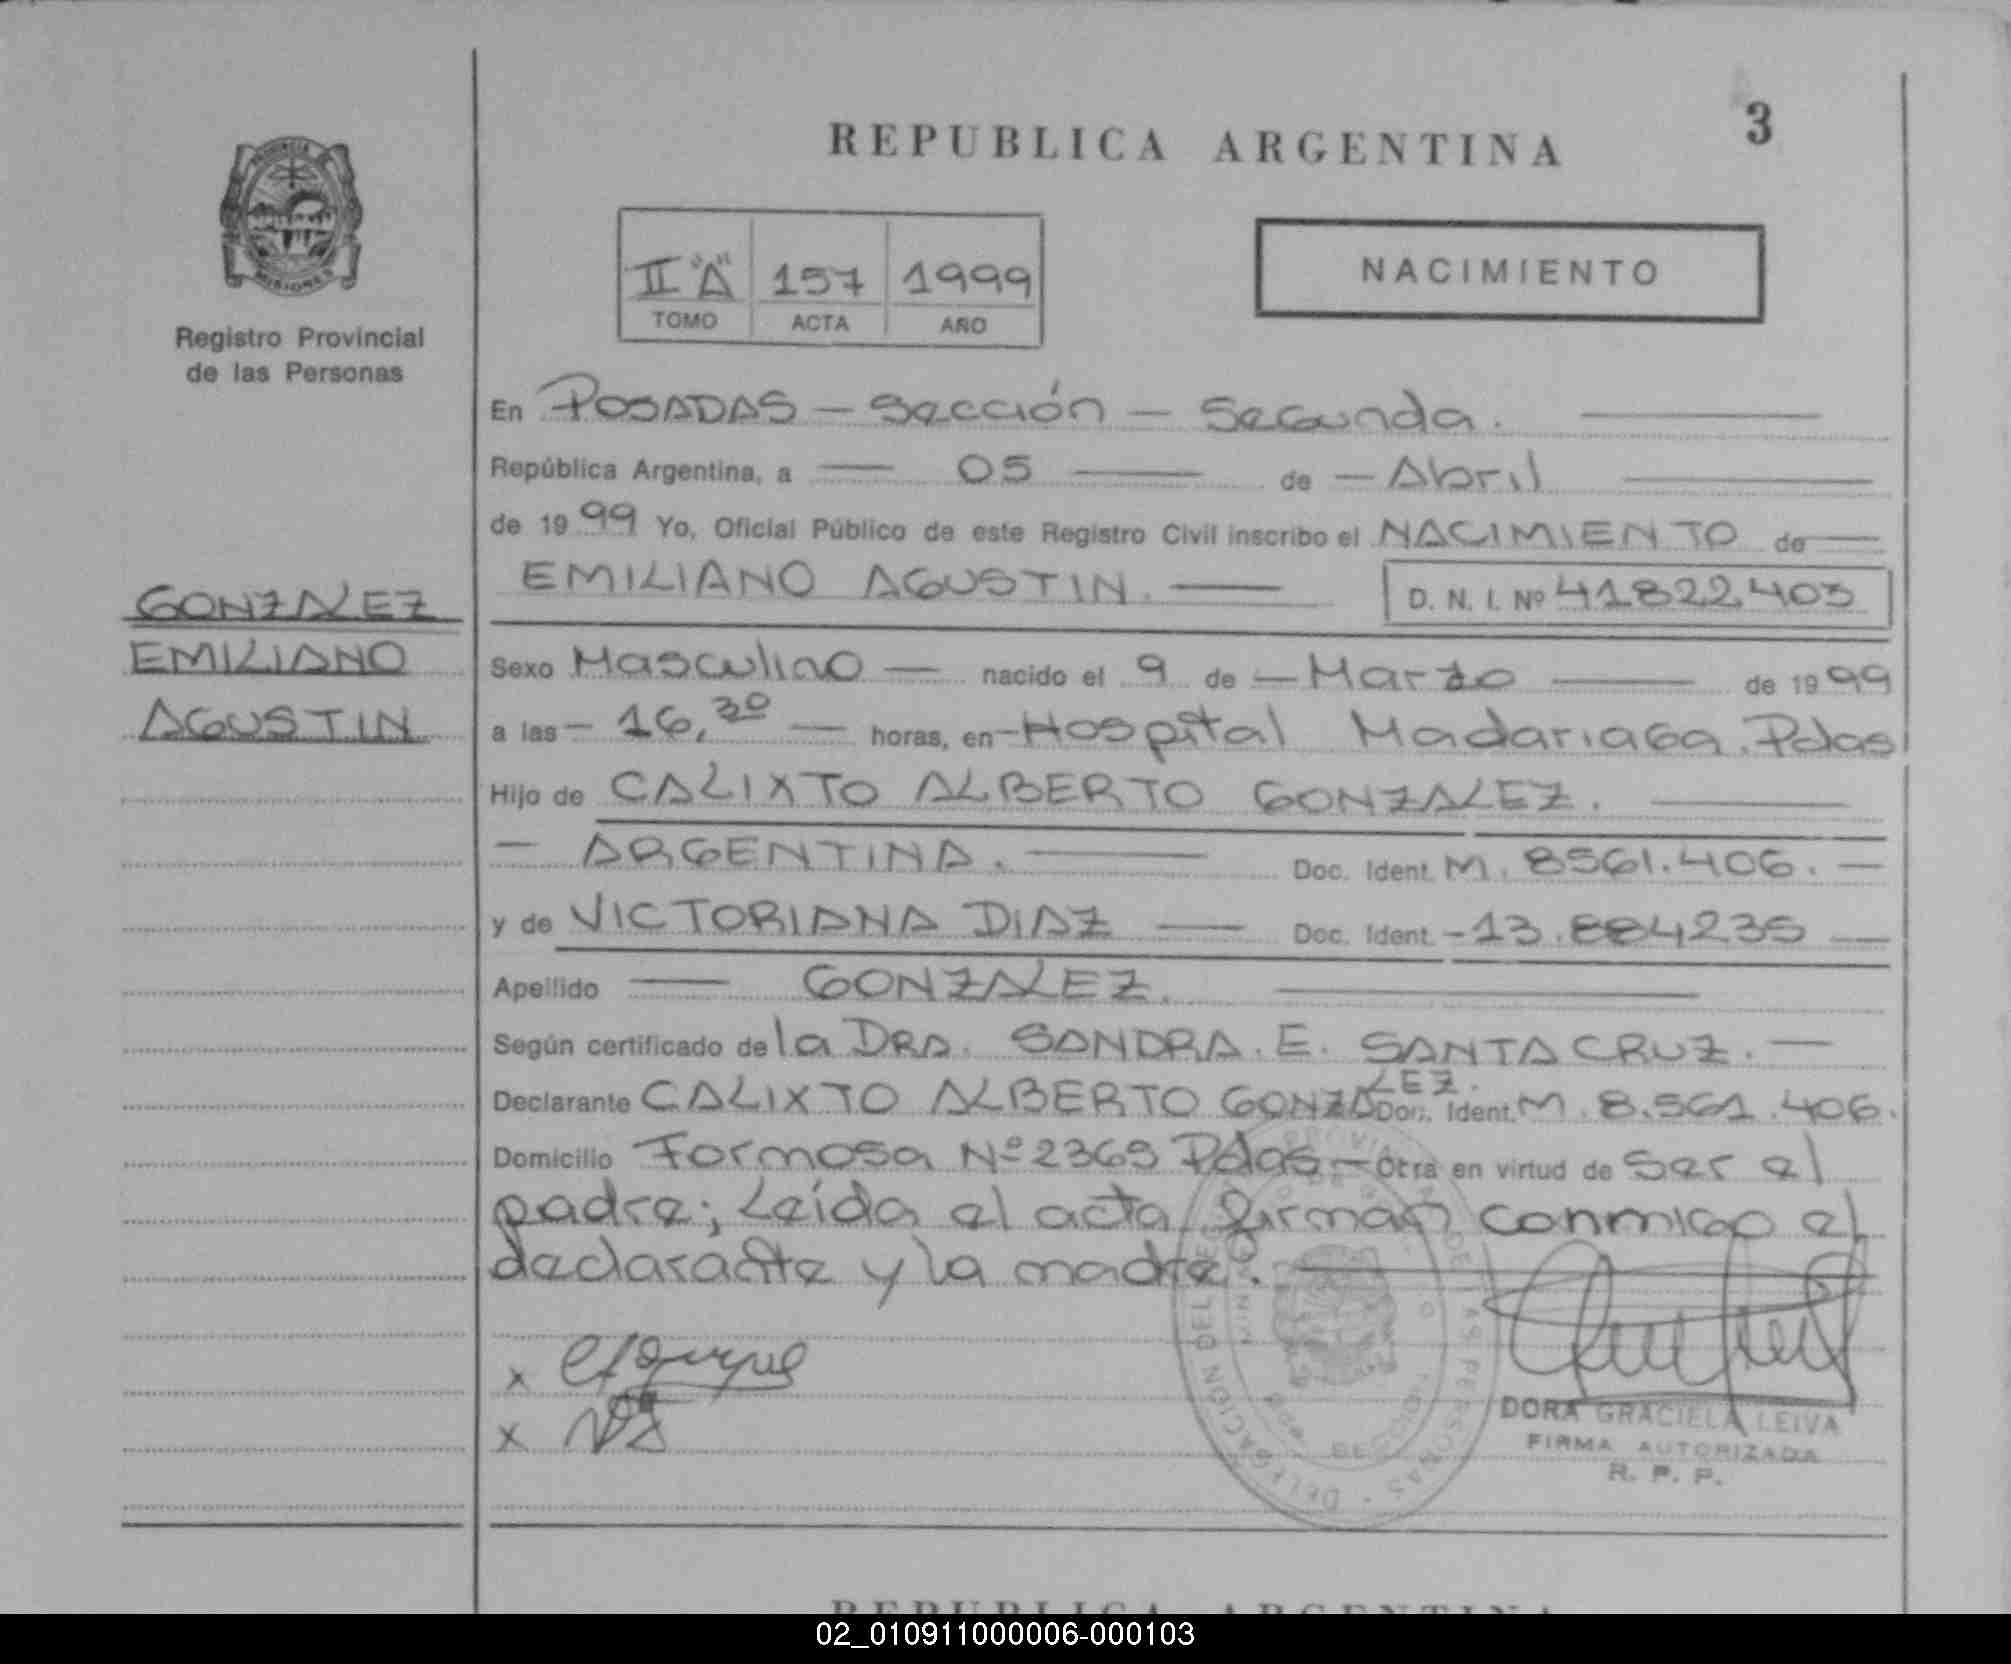 REPUBLICA ARGENTINA
3
PROVINCIA DE
MISIONES
Registro Provincial
de las Personas
II "A" 157 1999
TOMO ACTA AÑO
NACIMIENTO
En POSADAS - Sección - Segunda.
República Argentina, a 05 de Abril
de 1999 Yo, Oficial Público de este Registro Civil inscribo el NACIMIENTO de
EMILIANO AGUSTIN. D. N. I. Nº 41822403
GONZALEZ
EMILIANO
AGUSTIN
Sexo Masculino nacido el 9 de Marzo de 1999
a las 16,30 horas, en Hospital Madariaga. Pdas
Hijo de CALIXTO ALBERTO GONZALEZ.
ARGENTINA. Doc. Ident. M. 8561.406.
y de VICTORIANA DIAZ Doc. Ident. 13.884235
Apellido GONZALEZ.
Según certificado de la DRA. SANDRA. E. SANTACRUZ.
Declarante CALIXTO ALBERTO GONZALEZ. Doc. Ident. M. 8.561.406.
Domicilio Formosa Nº 2369 Pdas - Otra en virtud de ser el
padre; Leída el acta firman conmigo el
declarante y la madre.
DELEGACION DEL REGISTRO PROVINCIAL DE LAS PERSONAS
DORA GRACIELA LEIVA
FIRMA AUTORIZADA
R. P. P.
REPUBLICA ARGENTINA
02_010911000006-000103